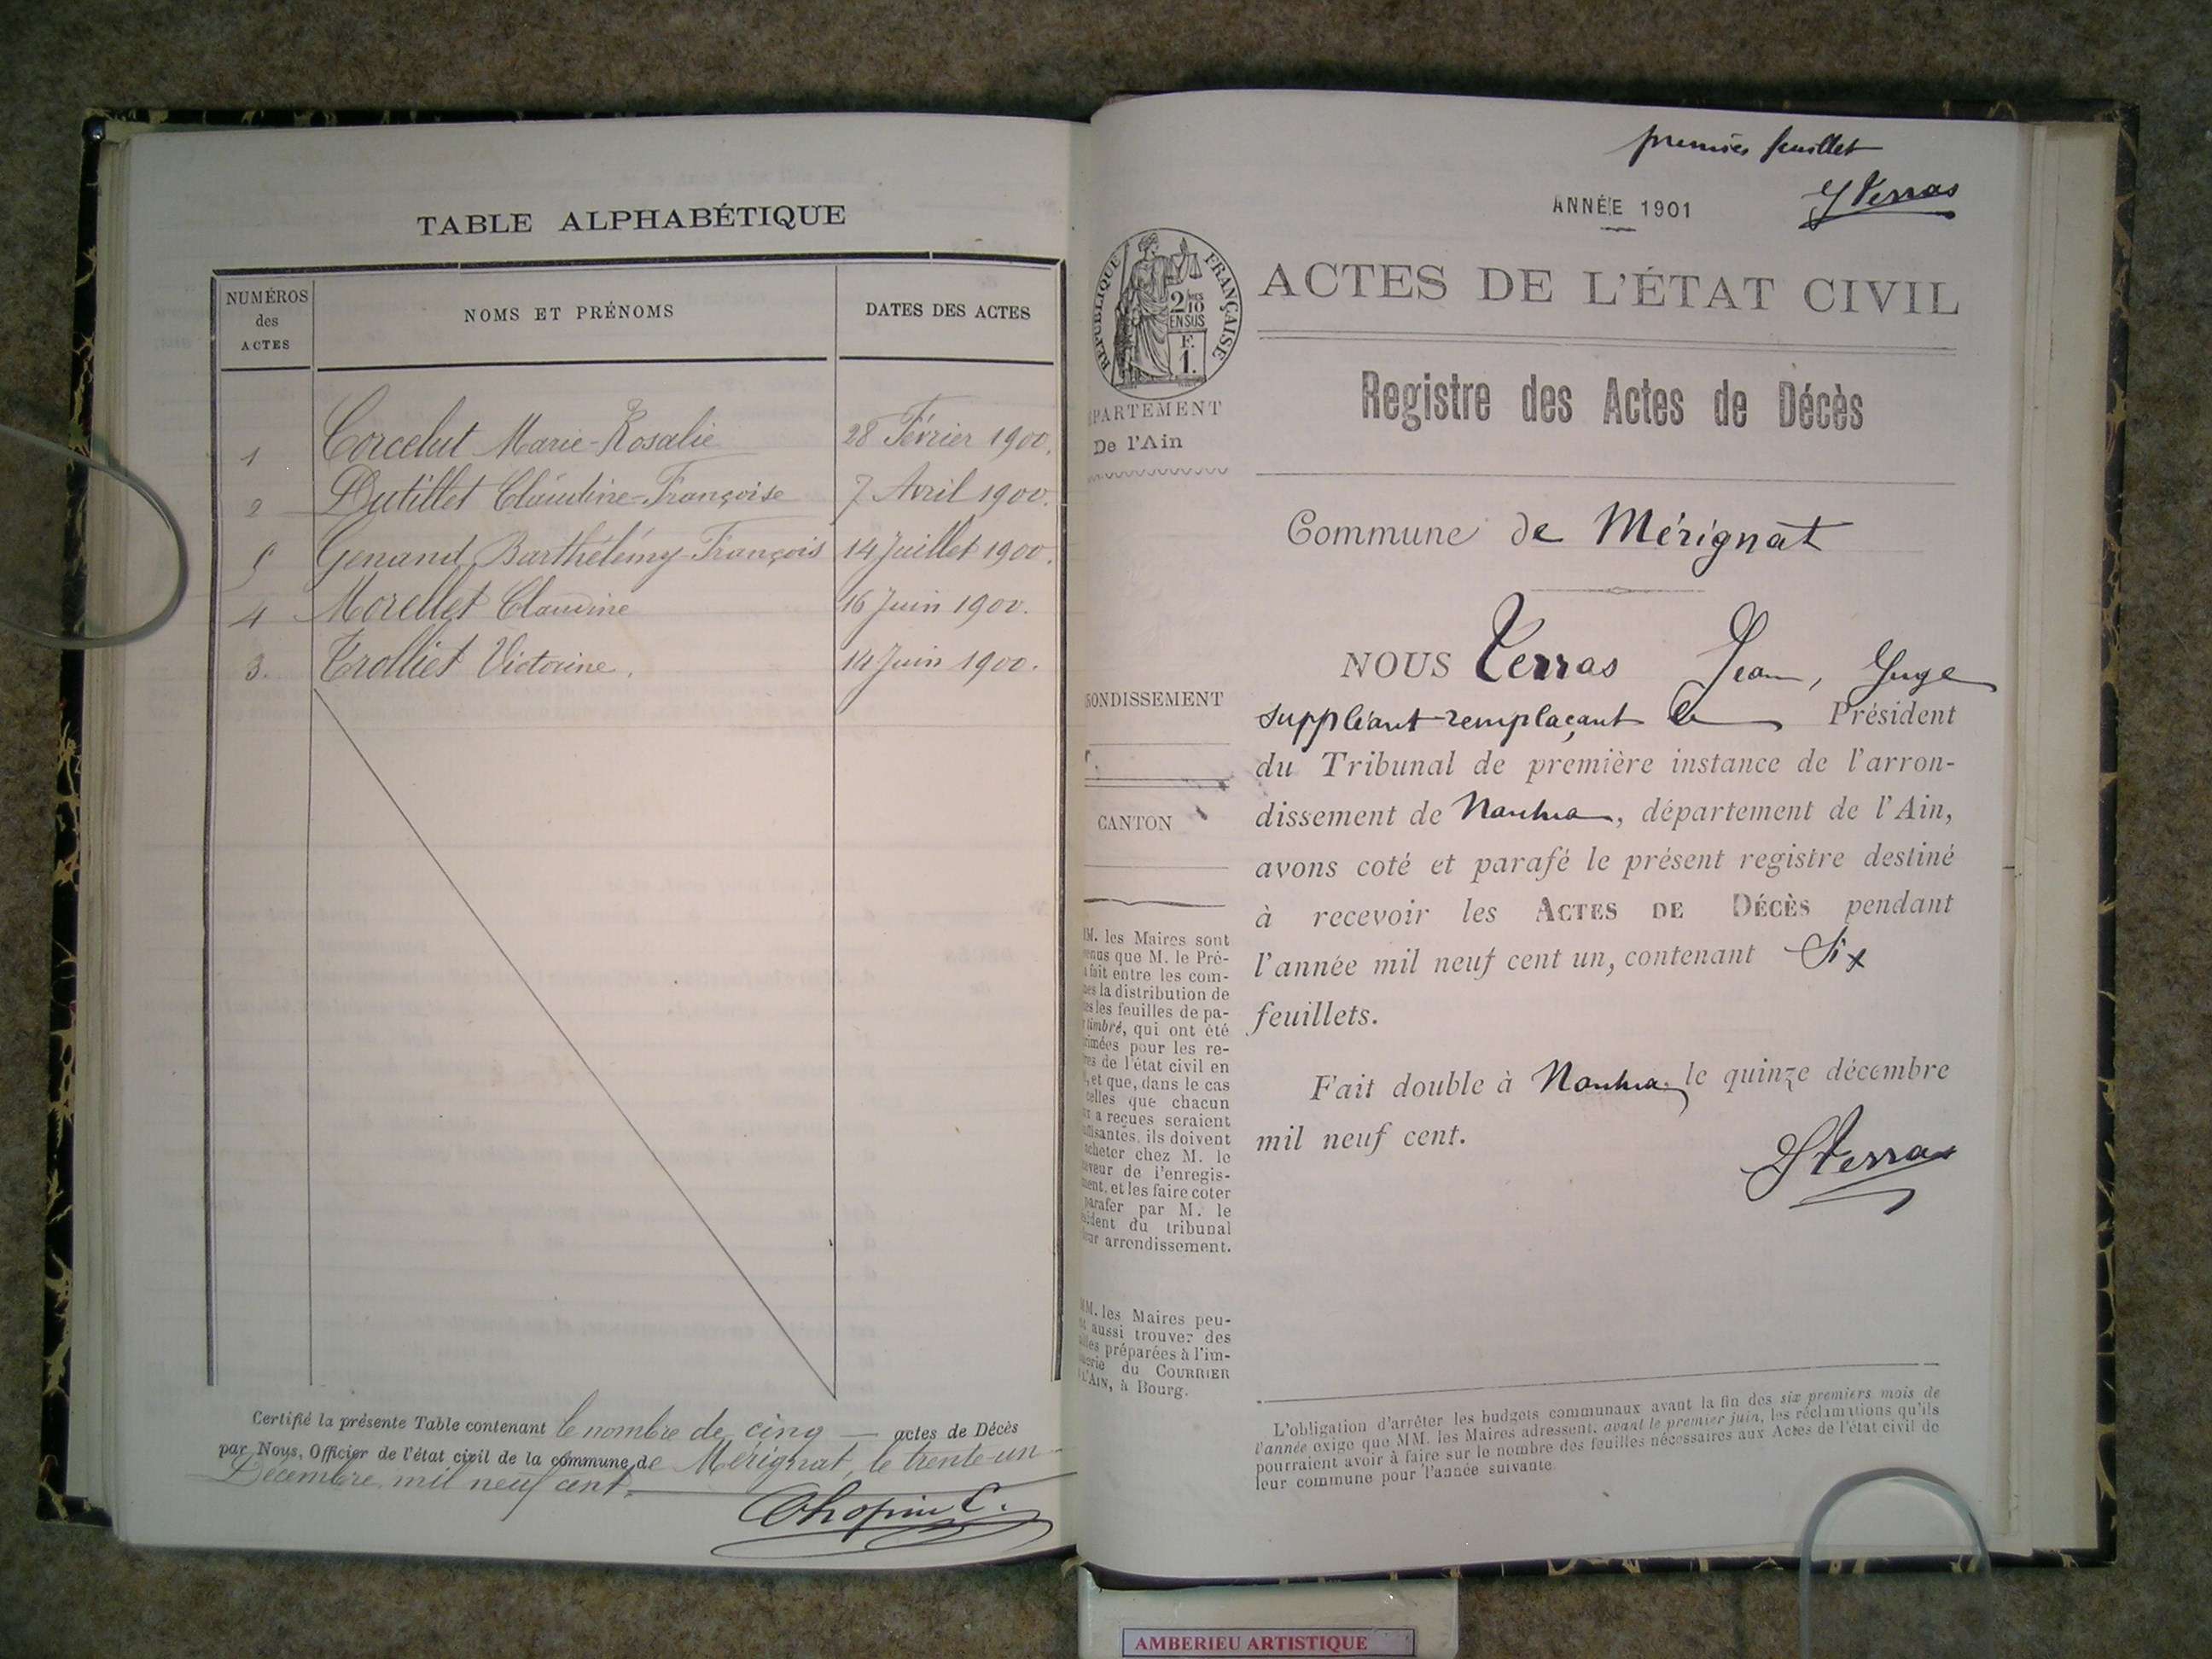 TABLE ALPHABÉTIQUE
NUMÉROS des ACTES
NOMS ET PRÉNOMS
DATES DES ACTES
1 Corcelut Marie-Rosalie 28 Février 1900.
2 Dutillet Claudine-Françoise 7 Avril 1900.
5 Genand Barthélémy-François 14 Juillet 1900.
4 Morellet Claudine 16 Juin 1900.
3. Trolliet Victorine. 14 Juin 1900.
Certifié la présente Table contenant le nombre de cinq — actes de Décès
par Nous, Officier de l'état civil de la commune de Mérignat, le trente-un
Décembre mil neuf cent.
Chopin C.
premier feuillet
ANNÉE 1901
J Verras
RÉPUBLIQUE FRANÇAISE
2/10 EN SUS
F. 1.
PARTEMENT
De l'Ain
ONDISSEMENT
CANTON
M. les Maires sont
enus que M. le Pré-
a fait entre les com-
es la distribution de
es les feuilles de pa-
timbré, qui ont été
rimées pour les re-
res de l'état civil en
, et que, dans le cas
celles que chacun
a reçues seraient
uffisantes, ils doivent
acheter chez M. le
eveur de l'enregis-
ment, et les faire coter
parafer par M. le
sident du tribunal
eur arrondissement.
MM. les Maires peu-
t aussi trouver des
lles préparées à l'im-
merie du COURRIER
L'AIN, à Bourg.
ACTES DE L'ÉTAT CIVIL
Registre des Actes de Décès
Commune de Mérignat
NOUS Verras Jean, Juge
suppléant remplaçant le Président
du Tribunal de première instance de l'arron-
dissement de Nantua, département de l'Ain,
avons coté et parafé le présent registre destiné
à recevoir les ACTES DE DÉCÈS pendant
l'année mil neuf cent un, contenant Six
feuillets.
Fait double à Nantua, le quinze décembre
mil neuf cent.
J Verras
L'obligation d'arrêter les budgets communaux avant la fin des six premiers mois de
l'année exige que MM. les Maires adressent, avant le premier juin, les réclamations qu'ils
pourraient avoir à faire sur le nombre des feuilles nécessaires aux Actes de l'état civil de
leur commune pour l'année suivante.
AMBERIEU ARTISTIQUE